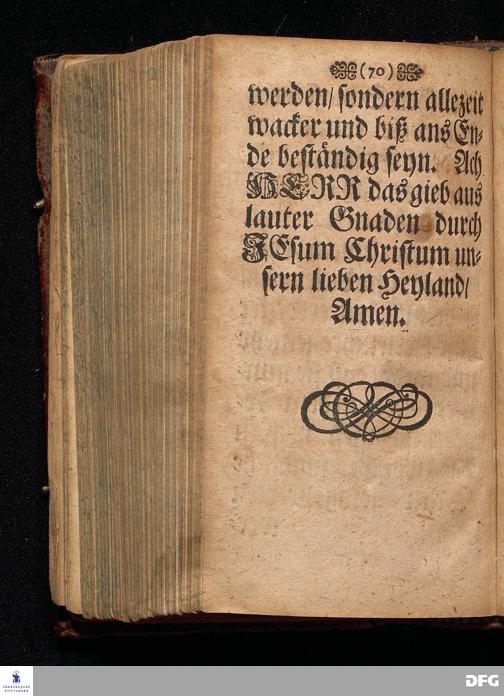 (70)
werden/ sondern allezeit
wacker und biß ans En-
de beständig seyn. Ach
HERR das gieb aus
lauter Gnaden durch
JEsum Christum un-
sern lieben Heyland/
Amen.
FRANCKESCHE
STIFTUNGEN
DFG